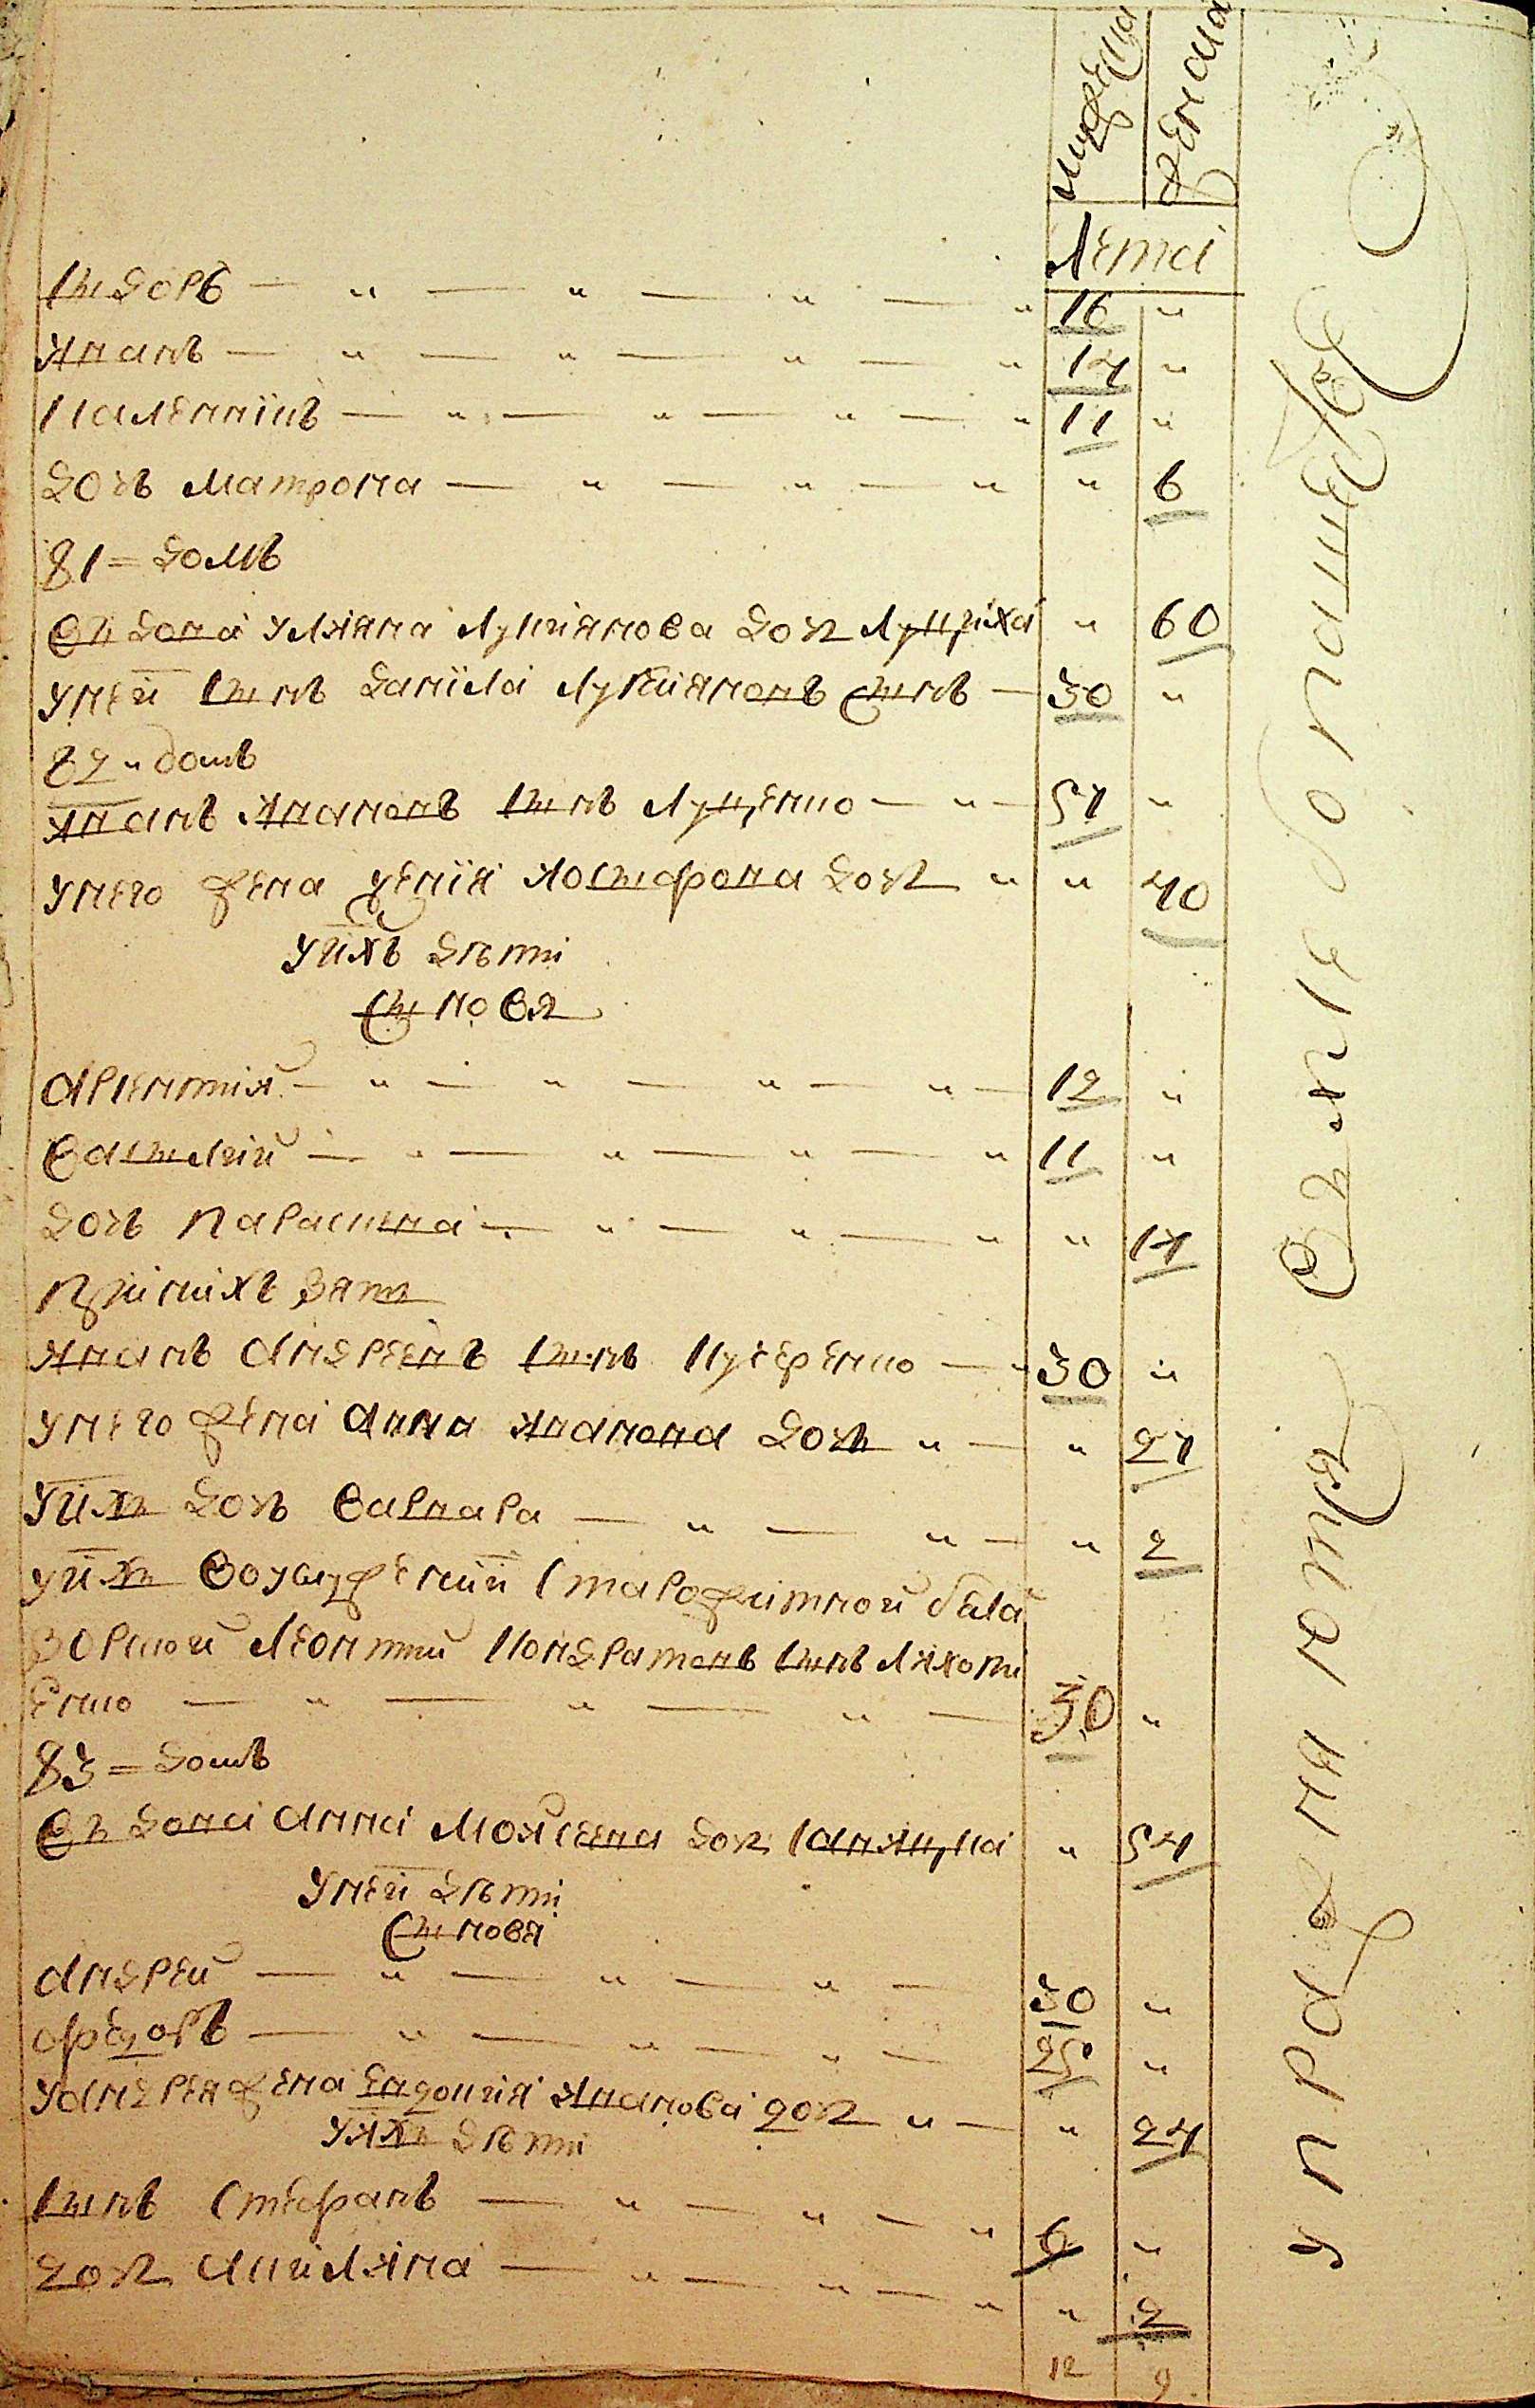 мужеска женска
лета
Сидоръ — " — " — " — " 16 "
Иванъ — " — " — " — " 14 "
Калениکъ — " — " — " — " 11 "
дочь Матрона — " — " — " " 6
81 = домъ
вдова Уляна Лукiянова дочь Луциха " 60
унеи сынъ данiла Лукiяновъ сынъ — 30 "
82 " домъ
Иванъ Ивановъ сынъ Луценко — " — 57 "
унего жена Ксенiя Иосифова дочь " " 40
унихъ дѣти
синовя
Арсентия — " — " — " — " — 12 "
Василий — " — " — " — " 11 "
дочь Параскева — " — " — " " 14
принихъ зять
Иванъ Андреевъ сынъ Кучеренко — " 30 "
унего жена Анна Иванова дочь " — " 27
унихъ дочь Варвара — " — " — " 2
унихъ вуслужении староженной
Леонтий Кондратовъ сынъ Ляхоти
енко — " — " — " — 30 "
83 = домъ
вдова Анна Мойсеева дочь " 54
унеи дѣти
синовя
Андрей — " — " — " — 30 "
Федоръ — " — " — " — 25 "
уАндрея жена Евдокия Иванова дочь " — " 24
унихъ дѣти
сынъ Стефанъ — " — " — " 6 "
дочь Акилина — " — " — " " 2
12 9